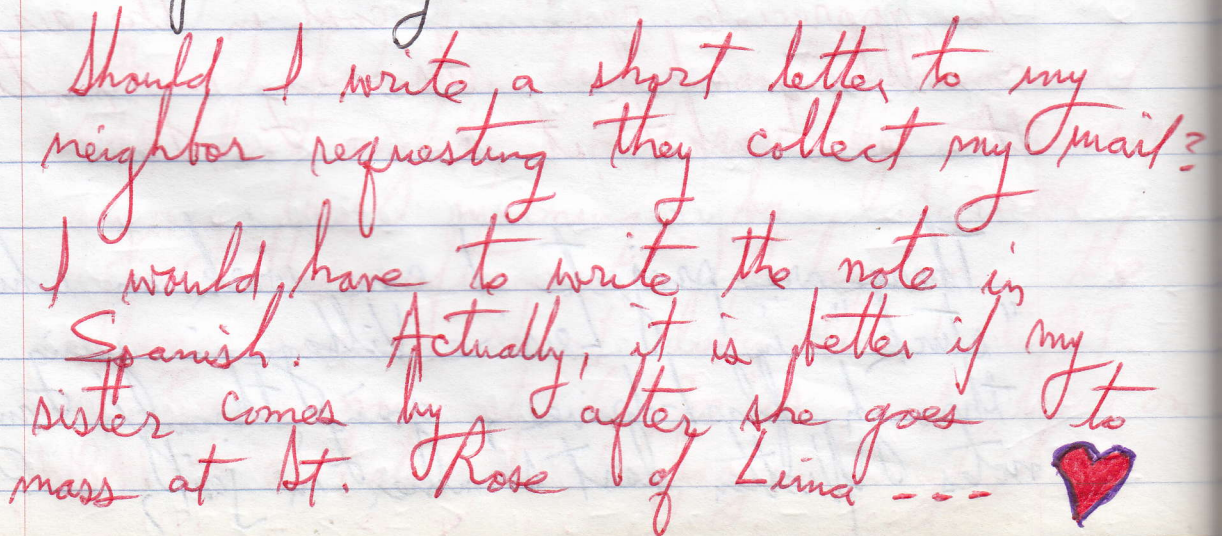 Should I write a short letter to my
neighbor requesting they collect my mail?
I would have to write the note in
Spanish. Actually, it is better if my
sister comes by after she goes to
mass at St. Rose of Lima ---